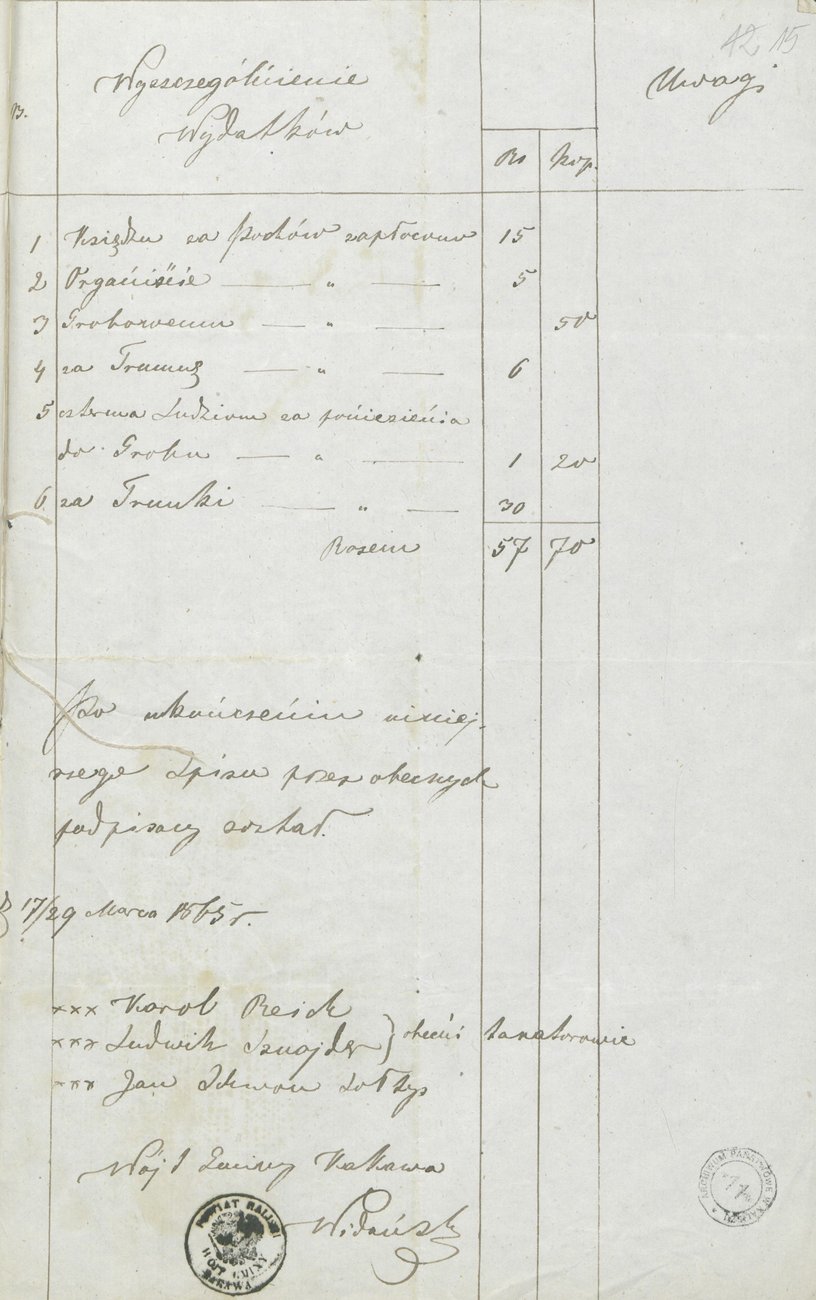 42 15
Wyszczególnienie
Wydatków
Uwagi
Rs Kop.
1 Księdzu za Pochów zapłacono 15
2 Organiście — „ — 5
3 Grobowemu — „ — 50
4 za Trumnę — „ — 6
5 czterma Ludziom za poniesienia
do Grobu — „ — 1 20
6 za Trunki — „ — 30
Razem 57 70
Po ukończeniu niniej-
szego Spisu przez obecnych
podpisany został.
17/29 Marca 1865 r.
xxx Karol Reich
xxx Ludwik Sznajder } obecni taxatorowie
xxx Jan Sołtys
Wójt Gminy Kakawa
POWIAT KALISKI
WÓJT GMINY
KAKAWA
ARCHIWUM PAŃSTWOWE W KALISZU